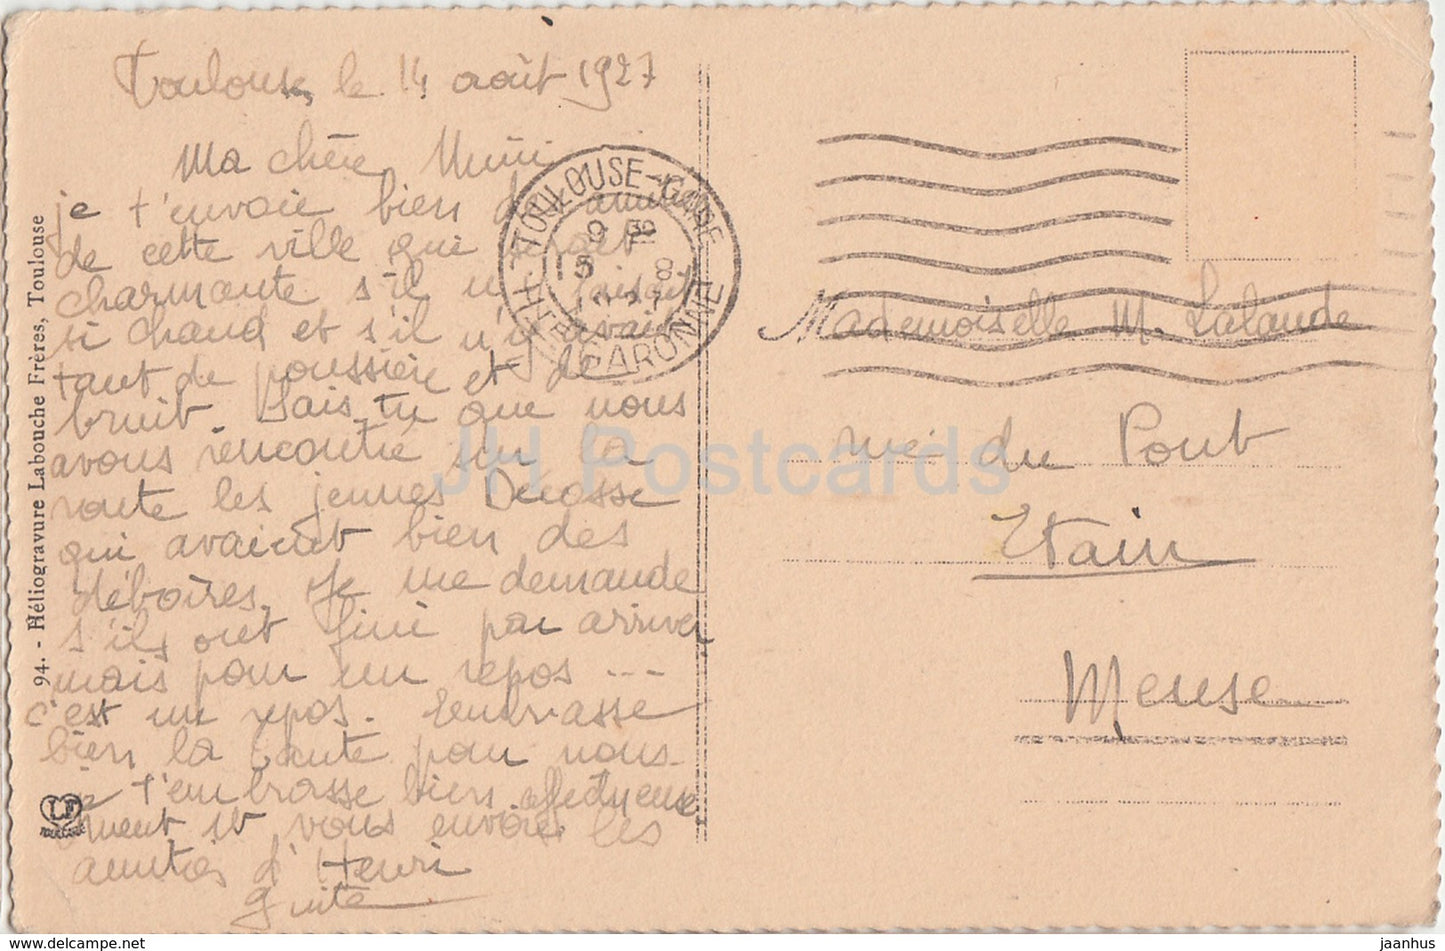 Toulouse, le 14 août 1927
Ma chère Mimi
je t'envoie bien d'ami
de cette ville qui serait
charmante s'il ne faisait
si chaud et s'il n'y avait
tant de poussière et de
bruit. Sais tu que nous
avons rencontré sur la
route les jeunes Decosse
qui avaient bien des
déboires. Je me demande
s'ils ont fini par arriver
mais pour un repos ---
c'est un repos. Embrasse
bien la tante pour nous
je t'embrasse bien affectueuse
ment et vous envoie les
amitiés d'Henri
Guite
TOULOUSE-GARE
9 H
15 8
1927
HTE GARONNE
Mademoiselle M. Lalande
rue du Pont
Etain
Meuse
94. - Héliogravure Labouche Frères, Toulouse
LF
TOULOUSE
JH Postcards
hippostcard.com/store/jaanhus